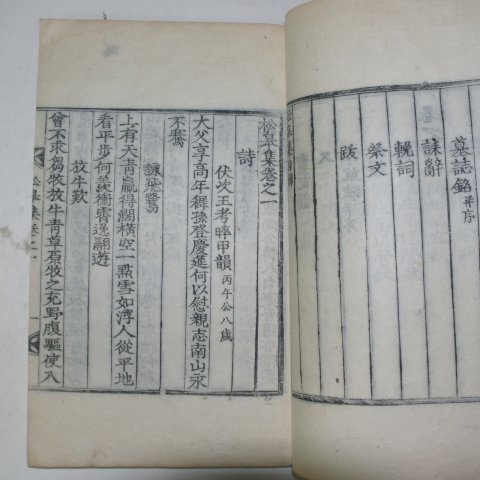 墓誌銘 并序
誄辭
輓詞
祭文
跋
松皐集卷之一
詩
伏次王考晬甲韻 丙午公八歲
大父享高年稺孫登慶進何以慰親志南山永
不騫
詠飛鷺
上有天青贏得濶橫空一點雪如浮人從平地
看平步何羡衝霄逸翮遊
放牛歎
曾不求芻牧放牛青草原牧之充野腹驅使入
松皐集卷之一